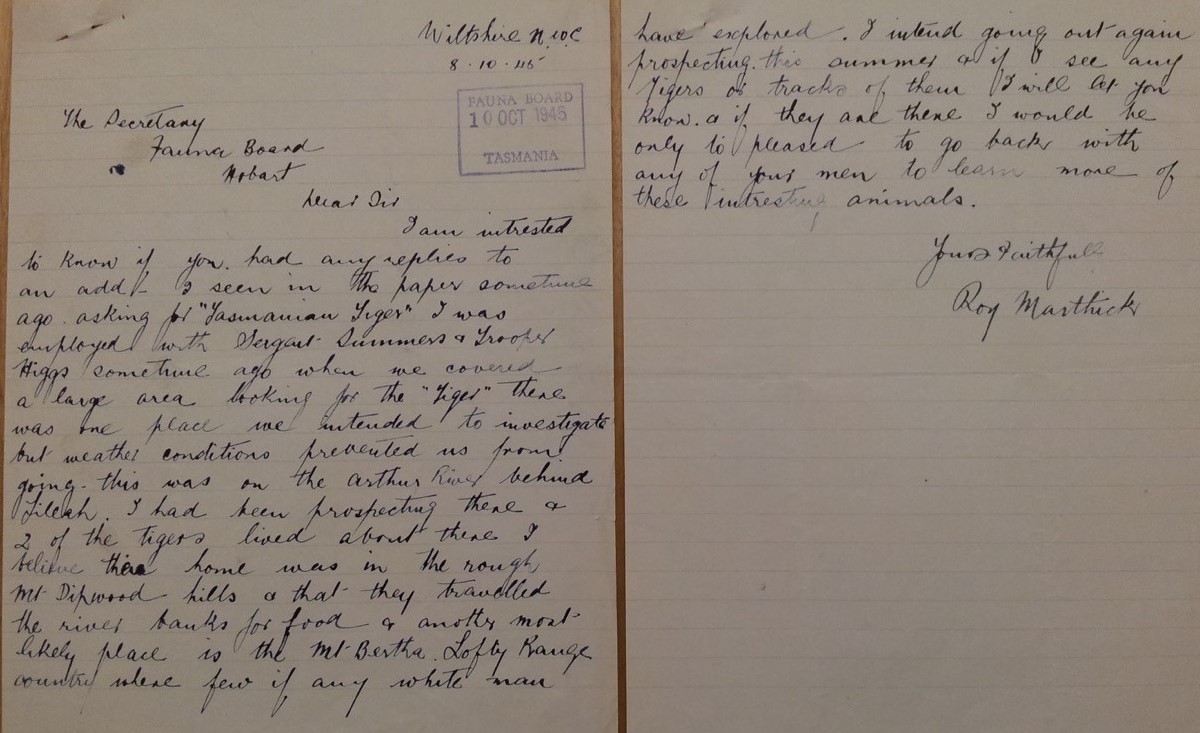 Wiltshire N.W.C
8.10.45
FAUNA BOARD
10 OCT 1945
TASMANIA
The Secretary
Fauna Board
Hobart
Dear Sir
I am intrested
to know if you. had any replies to
an add - I seen in the paper sometime
ago. asking for "Tasmanian Tiger" I was
employed with Sergant Summers & Trooper
Higgs sometime ago when we covered
a large area looking for the "Tiger" there
was one place we intended to investigate
but weather conditions prevented us from
going - this was on the arthur River behind
Lileah. I had been prospecting there &
2 of the tigers lived about there I
believe home was in the rough
Mt Dipwood hills & that they travelled
the river banks for food & another most
likely place is the Mt Bertha. Lofty Range
country where few if any white man
have explored. I intend going out again
prospecting. this summer & if I see any
Tigers or tracks of them I will let you
know. & if they are there I would be
only to pleased to go back with
any of your men to learn more of
these intresting animals.
Yours Faithfull
Roy Marthick